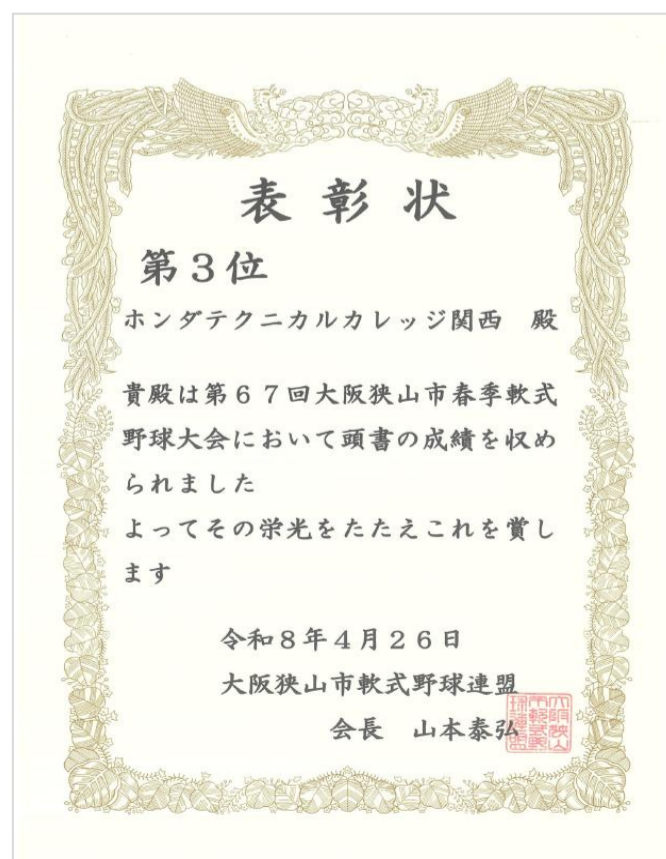 表彰状
第３位
ホンダテクニカルカレッジ関西　殿
貴殿は第６７回大阪狭山市春季軟式
野球大会において頭書の成績を収め
られました
よってその栄光をたたえこれを賞し
ます
令和８年４月２６日
大阪狭山市軟式野球連盟
会長　山本泰弘
大阪狭山
市軟式野
球連盟